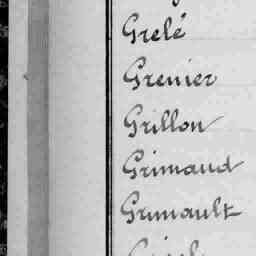 Grelé
Grenier
Grillon
Grimaud
Grimault